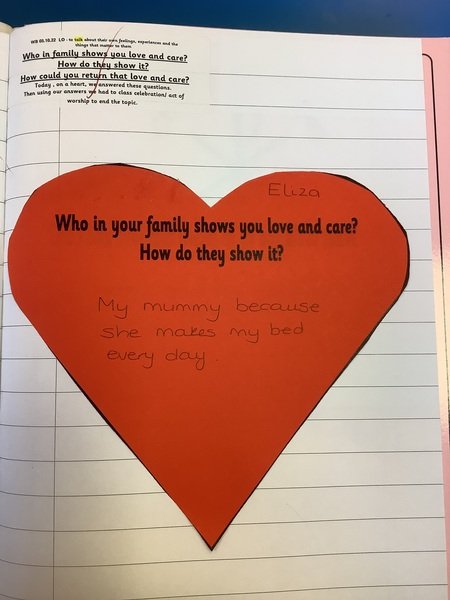 WB 05.10.22 LO - to talk about their own feelings, experiences and the
things that matter to them
Who in family shows you love and care?
How do they show it?
How could you return that love and care?
Today , on a heart, we answered these questions.
Then using our answers we had to class celebration/ act of
worship to end the topic.
Eliza
Who in your family shows you love and care?
How do they show it?
My mummy because
she makes my bed
every day